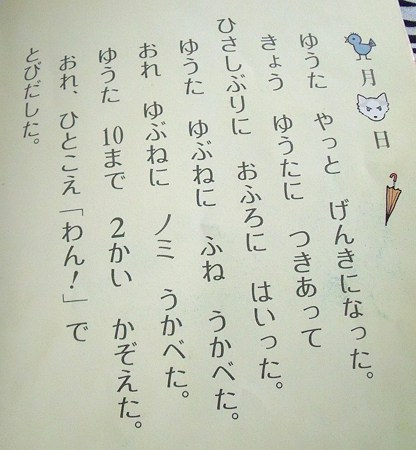 月 日
ゆうた やっと げんきになった。
きょう ゆうたに つきあって
ひさしぶりに おふろに はいった。
ゆうた ゆぶねに ふね うかべた。
おれ ゆぶねに ノミ うかべた。
ゆうた 10まで 2かい かぞえた。
おれ、ひとこえ「わん!」で
とびだした。